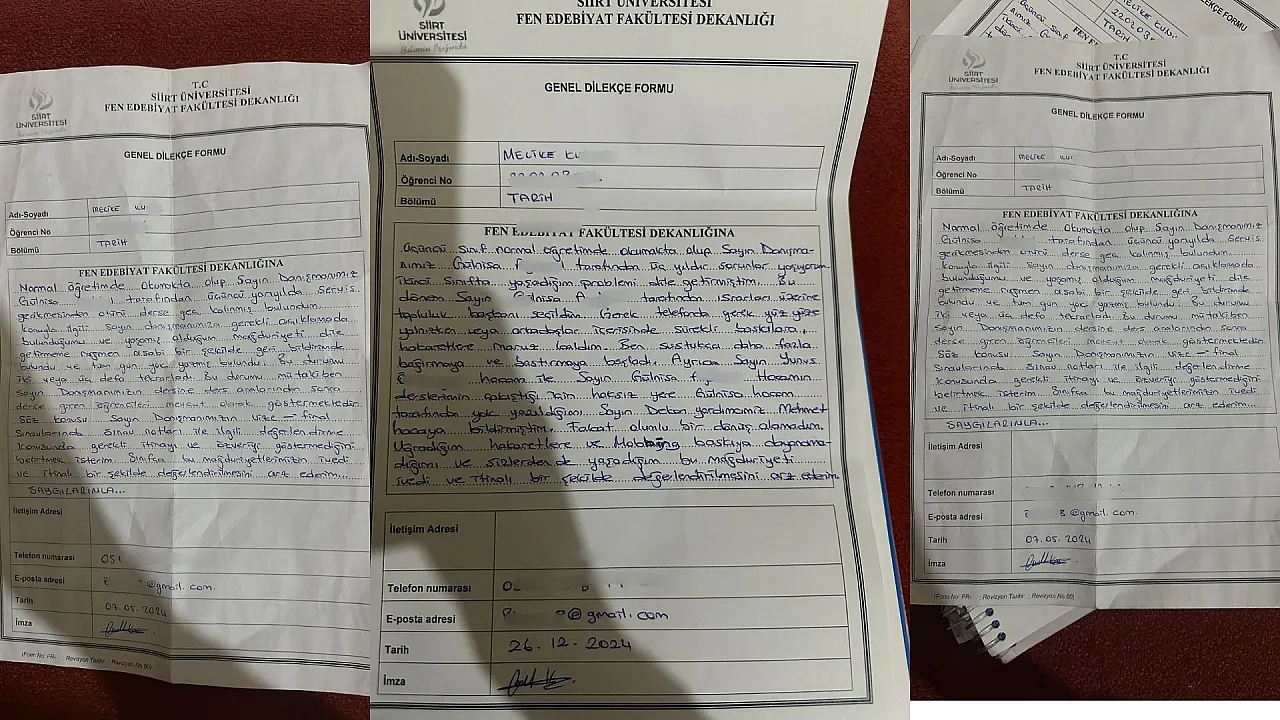 SİİRT
ÜNİVERSİTESİ
Bilimin Işığında
T.C
SİİRT ÜNİVERSİTESİ
FEN EDEBİYAT FAKÜLTESİ DEKANLIĞI
GENEL DİLEKÇE FORMU
Adı-Soyadı MELİKE KU
Öğrenci No
Bölümü TARİH
FEN EDEBİYAT FAKÜLTESİ DEKANLIĞINA
Normal öğretimde okumakta olup Sayın Danışmanımız
Gülnisa tarafından üçüncü yarıyılda servis
gecikmesinden ötürü derse geç kalmış bulundum
konuyla ilgili Sayın danışmanımıza gerekli açıklamada
bulunduğumu ve yaşamış olduğum mağduriyeti dile
getirmeme rağmen asabi bir şekilde geri bildirimde
bulundu ve tüm gün yok yazmış bulundu. Bu durumu
iki veya üç defa tekrarladı. Bu durumu mütakiben
Sayın Danışmanımızın dersine ders aralarından sonra
derse giren öğrencileri mevcut olarak göstermektedir.
Söz konusu Sayın Danışmanımızın vize - final
Sınavlarında sınav notları ile ilgili değerlendirme
konusunda gerekli itinayı ve özveriyi göstermediğini
belirtmek isterim. Sınıfça bu mağduriyetlerimizin ivedi
ve itinalı bir şekilde değerlendirilmesini arz ederim
SAYGILARIMLA...
İletişim Adresi
Telefon numarası 05
E-posta adresi @gmail.com
Tarih 07.05.2024
İmza
(Form No: FR- ; Revizyon Tarihi: ; Revizyon No:00)
SİİRT
ÜNİVERSİTESİ
Bilimin Işığında
SİİRT ÜNİVERSİTESİ
FEN EDEBİYAT FAKÜLTESİ DEKANLIĞI
GENEL DİLEKÇE FORMU
Adı-Soyadı MELİKE KU
Öğrenci No
Bölümü TARİH
FEN EDEBİYAT FAKÜLTESİ DEKANLIĞINA
Üçüncü sınıf normal öğretimde okumakta olup Sayın Danışma-
nımız Gülnisa tarafından üç yıldır sorunlar yaşıyorum
ikinci sınıfta yaşadığım problemi dile getirmiştim. Bu
dönem Sayın Gülnisa A tarafından ısrarları üzerine
topluluk başkanı seçildim. Gerek telefonda gerek yüz yüze
yalnızken veya ortadaşlar içerisinde sürekli baskılara
hakaretlere maruz kaldım. Ben sustukça daha fazla
bağırmaya ve bastırmaya başladı. Ayrıca Sayın Yunus
E hocam ile Sayın Gülnisa Hocamın
derslerimin çakıştığı için haksız yere Gülnisa hocam
tarafından yok yazıldığımı Sayın Dekan yardımcımız Mehmet
hocaya bildirmiştim. Fakat olumlu bir dönüş alamadım.
Uğradığım hakaretlere ve Mobbing baskıya dayanama-
dığımı ve sizlerden de yaşadığım bu mağduriyeti
ivedi ve itinalı bir şekilde değerlendirilmesini arz ederim
İletişim Adresi
Telefon numarası 0
E-posta adresi @gmail.com
Tarih 26.12.2024
İmza
FORMU
MELİKE KU
TARİH
SİİRT
ÜNİVERSİTESİ
T.C
SİİRT ÜNİVERSİTESİ
FEN EDEBİYAT FAKÜLTESİ DEKANLIĞI
GENEL DİLEKÇE FORMU
Adı-Soyadı MELİKE KU
Öğrenci No
Bölümü TARİH
FEN EDEBİYAT FAKÜLTESİ DEKANLIĞINA
Normal öğretimde okumakta olup Sayın Danışmanımız
Gülnisa tarafından üçüncü yarıyılda servis
gecikmesinden ötürü derse geç kalmış bulundum
konuyla ilgili Sayın danışmanımıza gerekli açıklamada
bulunduğumu ve yaşamış olduğum mağduriyeti dile
getirmeme rağmen asabi bir şekilde geri bildirimde
bulundu ve tüm gün yok yazmış bulundu. Bu durumu
iki veya üç defa tekrarladı. Bu durumu mütakiben
Sayın Danışmanımızın dersine ders aralarından sonra
derse giren öğrencileri mevcut olarak göstermektedir.
Söz konusu Sayın Danışmanımızın vize - final
Sınavlarında sınav notları ile ilgili değerlendirme
konusunda gerekli itinayı ve özveriyi göstermediğini
belirtmek isterim. Sınıfça bu mağduriyetlerimizin ivedi
ve itinalı bir şekilde değerlendirilmesini arz ederim.
SAYGILARIMLA...
İletişim Adresi
Telefon numarası
E-posta adresi @gmail.com.
Tarih 07.05.2024
İmza
(Form No: FR- ; Revizyon Tarihi: ; Revizyon No:00)